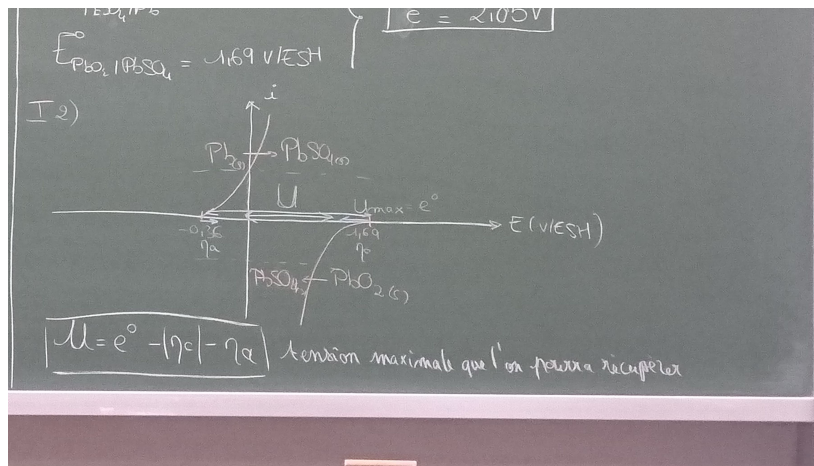 e = 2,05V
E°PbO₂/PbSO₄ = 1,69 V/ESH
I 2)
i
Pb(s) → PbSO₄(s)
U
Umax = e°
E (V/ESH)
-0,36
1,69
ηa
ηc
PbSO₄ ← PbO₂(s)
U = e° - |ηc| - ηa tension maximale que l'on pourra récupérer